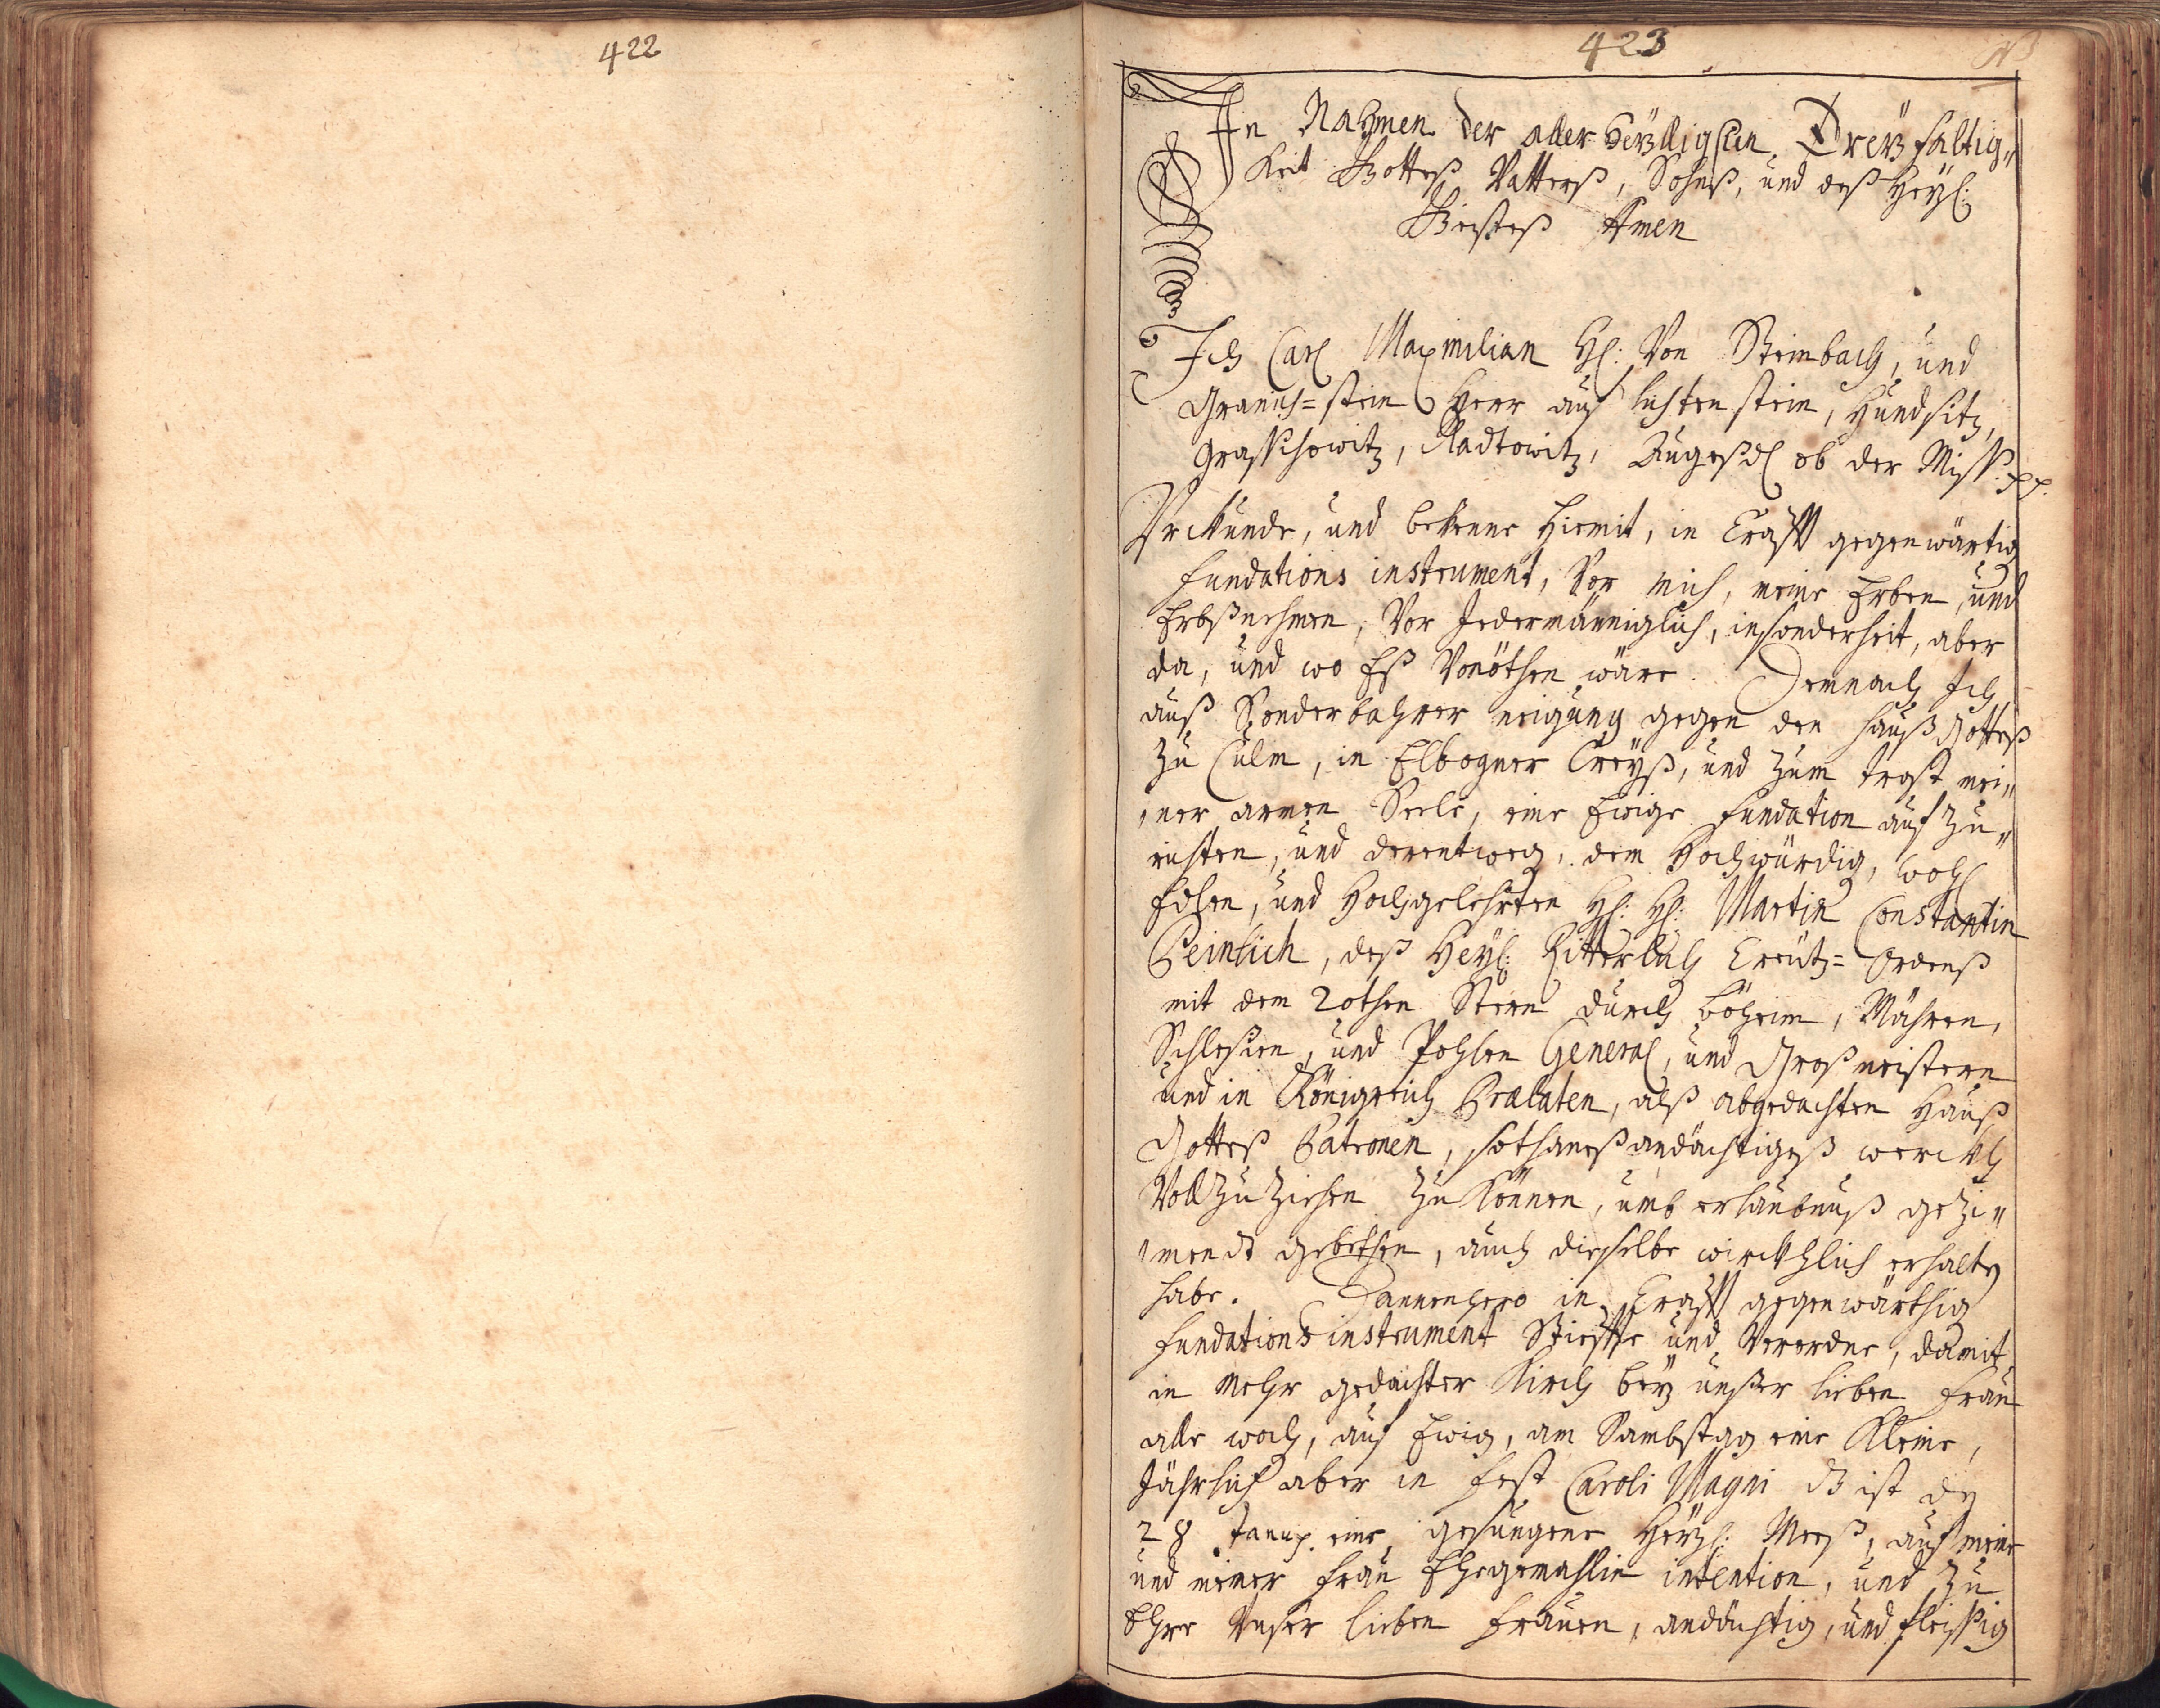 422
423
NB
In Nahmen der aller heÿlligsten Dreÿfaltig„
keit Gotteß Vatterß, Sohnß, und deß Heÿl:
Geisteß Amen
Ich Carl Maximilian H: Von Steinbach, und
Herr auf lichtenstein, Hundsitz,
Radtowitz, ob der Miß. pp.
Vrkunde, und bekenne hiemit, in Crafft gegenwärtig
fundations instrument, Vor mich, meine Erben, und
Erbßnehmen, Vor Jedermänniglich, insonderheit, aber
da, und wo Eß Vonöthen wäre. Demnach Ich
auß Sonderbahrer neigung gegen den Hauß Gotteß
zu Culm, in Elbogner Creÿß, und zum trost mei„
„ner armen Seele, eine Ewige fundation auf zu„
richten, und derentweg, dem Hochwürdig, wohl
Edlen, und Hochgelehrten H: H: Martin Constantin
Beinlich, deß Heÿl: Ritterlich Creütz= Ordenß
mit dem Rothen Stern durch Böheim, Mähren,
Schlesien, und Pohlen General, und Großmeistern
und in Königreich Prælaten, alß obgedachten Hauß
Gotteß Patronen, sothaneß andächtigeß werckh
Vollzuziehen zu können, umb erlaubnuß gezi„
„mendt gebethen, auch dieselbe wirckhlich erhalten
habe. Dannenhero in Crafft gegenwärthig
fundations instrument Stieffte und Verordne, damit
in mehr gedachter Kirch beÿ unßer lieben Frau
alle woch, auf Ewig, am Sambstag eine Kleine,
Jährlich aber in fest Caroli Magni d. ist den
28 Januar. eine gesungene Heÿl: Meeß, auf meine
und meiner Frau Ehegemahlin intention, und zu
Ehre Vnser lieben Frauen, andächtig, und fleissig